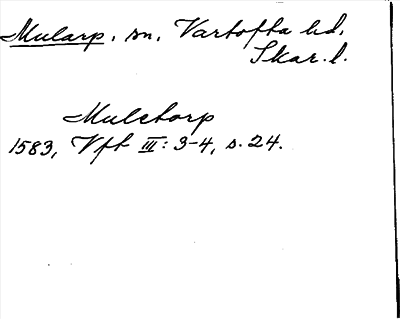 Mularp. sn. Vartofta hd.
Skar. l.
Muletorp
1583, Vft III: 3-4, s. 24.